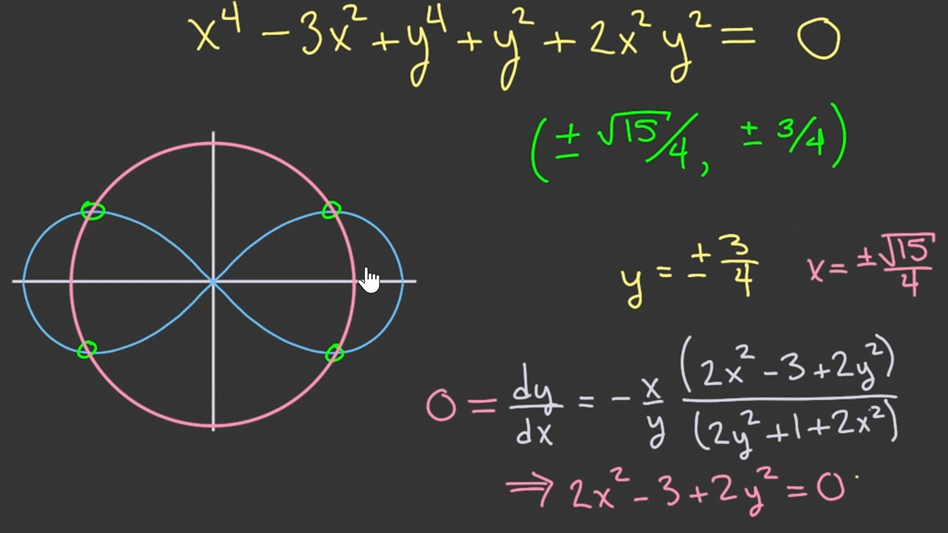 x⁴ - 3x² + y⁴ + y² + 2x²y² = 0
(± √15/4, ± 3/4)
y = ± 3/4
x = ± √15/4
0 = dy/dx = - x/y (2x² - 3 + 2y²)/(2y² + 1 + 2x²)
⇒ 2x² - 3 + 2y² = 0